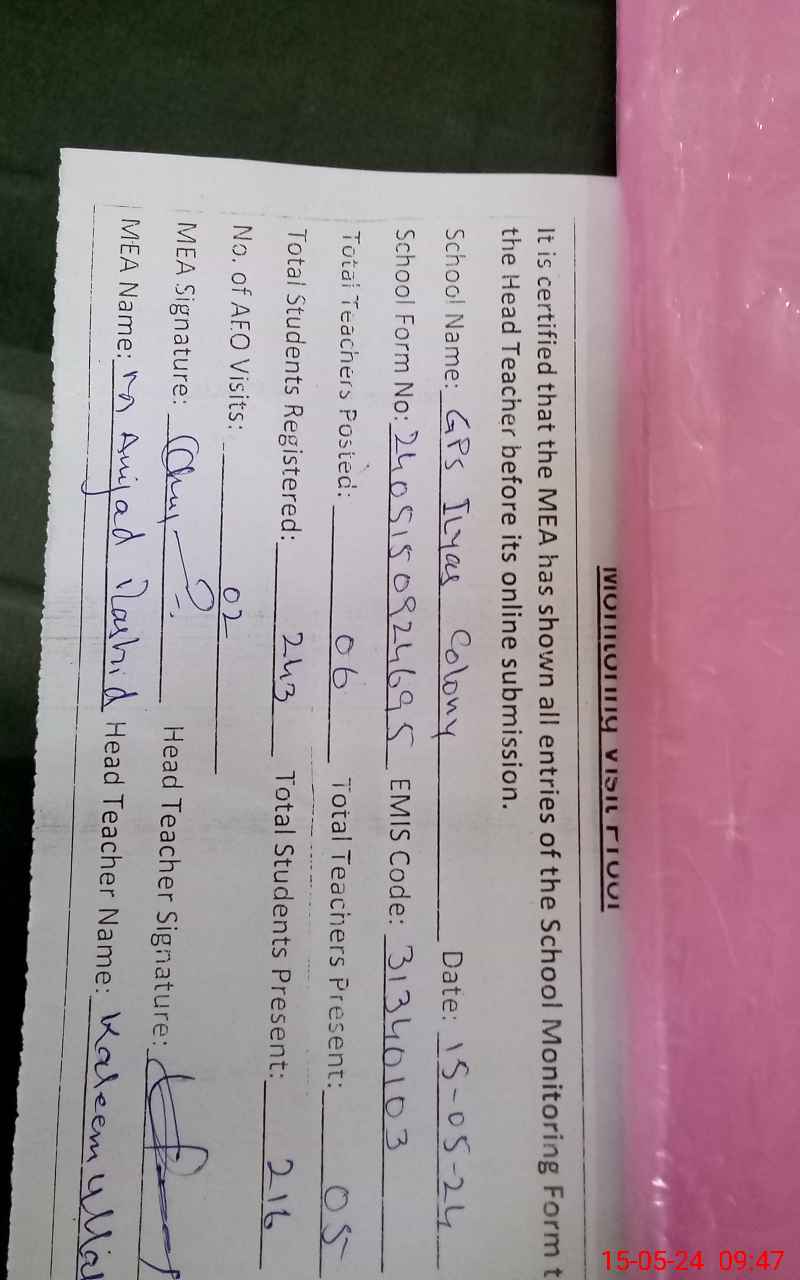 Monitoring Visit Proof
It is certified that the MEA has shown all entries of the School Monitoring Form t
the Head Teacher before its online submission.
School Name: GPS Ilyas Colony Date: 15-05-24
School Form No: 2405150924695 EMIS Code: 31340103
Total Teachers Posted: 06 Total Teachers Present: 05
Total Students Registered: 243 Total Students Present: 216
No. of AEO Visits: 02
MEA Signature: Head Teacher Signature:
MEA Name: M Amjad Rashid Head Teacher Name: Kaleem ullah
15-05-24 09:47